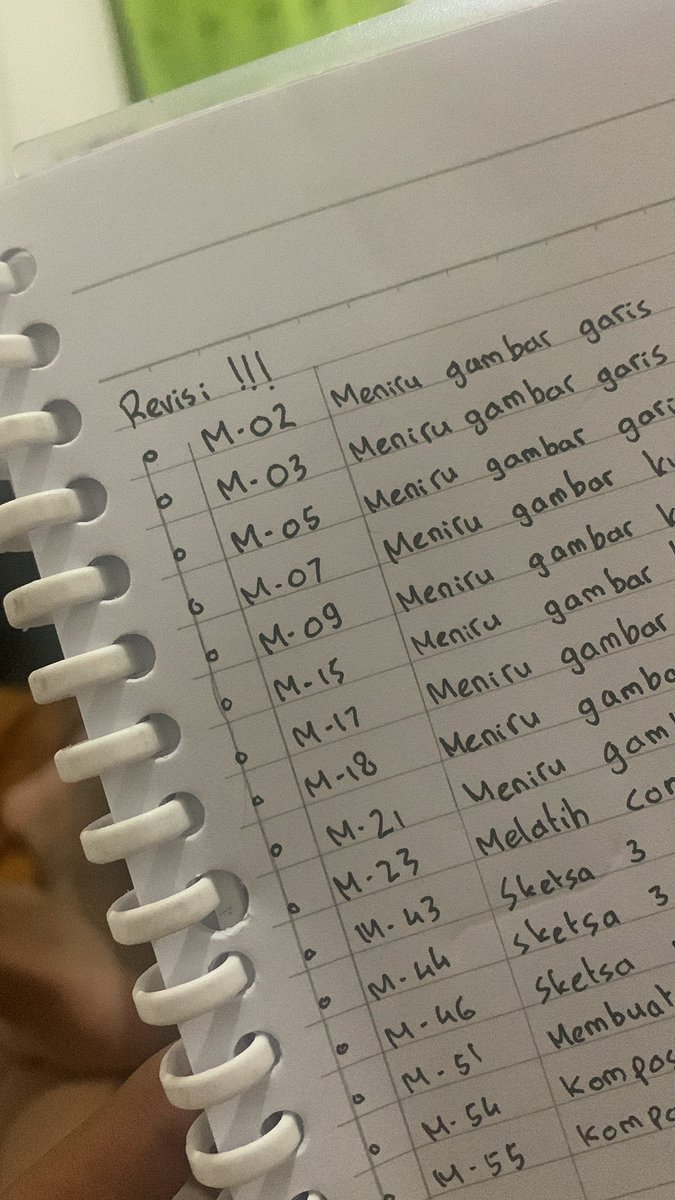 Revisi !!!
M-02 Meniru gambar garis
M-03 Meniru gambar garis
M-05 Meniru gambar
M-07 Meniru gambar
M-09 Meniru gambar
M-15 Meniru gambar
M-17 Meniru gambar
M-18 Meniru
M-21 Meniru
M-23 Melatih
M-43 Sketsa 3
M-44 Sketsa 3
M-46 Sketsa
M-51 Membuat
M-54
M-55